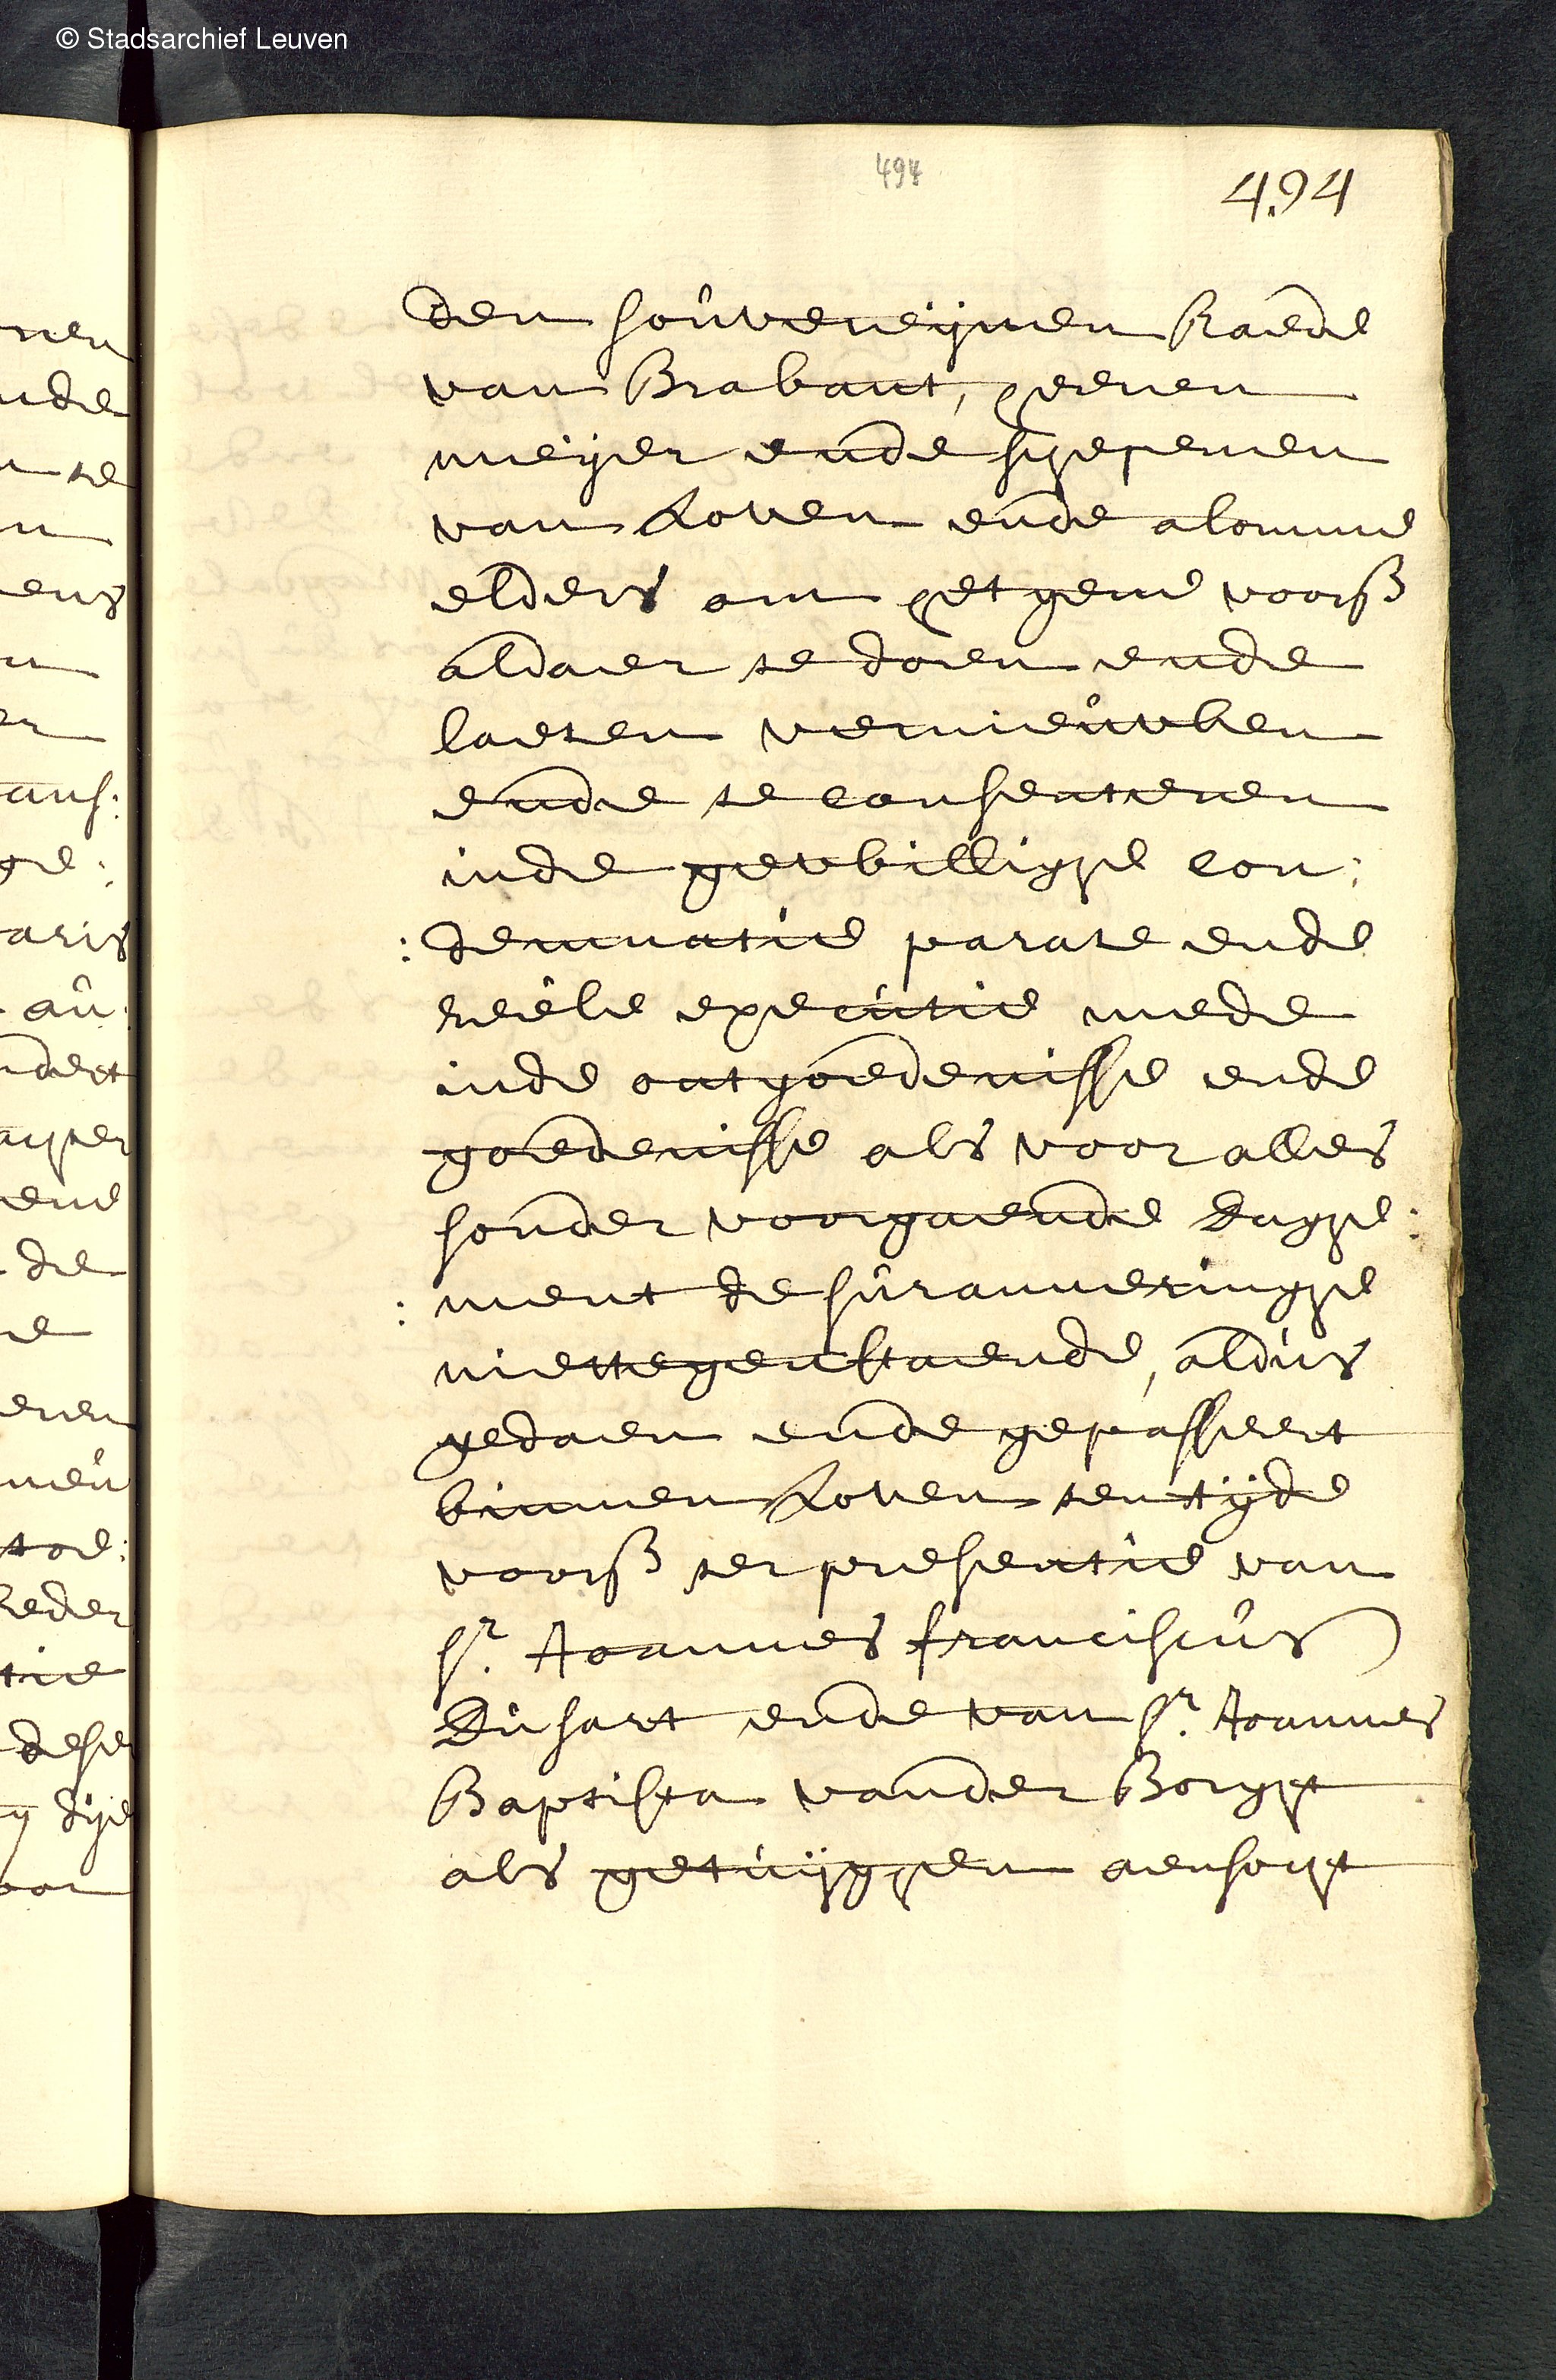 © Stadsarchief Leuven
494
494
den souvereijnen Raede
van Brabant, heeren
meijer ende schepenen
van Loven ende alomme
elders om het gene voorß
aldaer te doen ende
laeten vernieuwen
ende te consenteren
inde gewillighe con:
:demnatie parate ende
reële executie mede
inde ontgoedenisse ende
goedenisse als voor alles
sonder voorgaende daghe:
:ment de suranneringhe
niettegenstaende, aldus
gedaen ende gepasseert
binnen Loven ten tijde
voorß ter presentie van
sr. Joannes franciscus
Dusart ende van sr. Joannes
Baptista vander Borght
als getuijghen aensocht